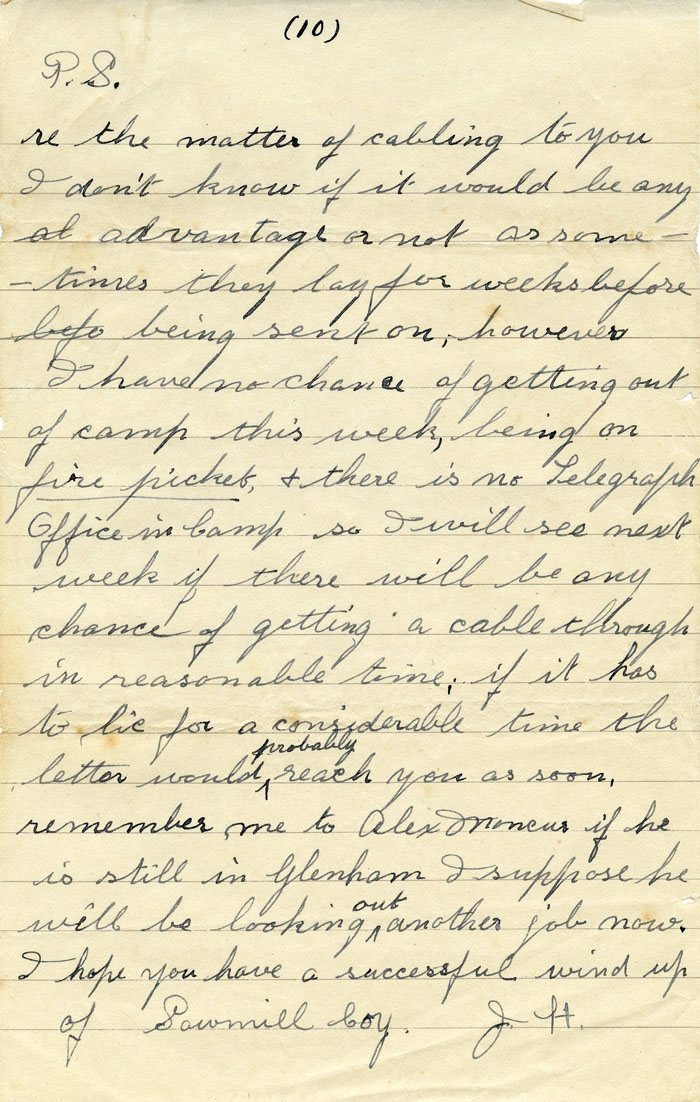 (10)
P.S.
re the matter of cabling to you
I don't know if it would be any
al advantage or not as some-
-times they lay for weeks before
befo being sent on; however
I have no chance of getting out
of camp this week, being on
fire picket, & there is no Telegraph
Office in Camp so I will see next
week if there will be any
chance of getting a cable through
in reasonable time; if it has
to lie for a considerable time the
probably
letter would reach you as soon,
remember me to Alex if he
is still in Glenham I suppose he
out
will be looking another job now.
I hope you have a successful wind up
of Sawmill Coy. J. H.